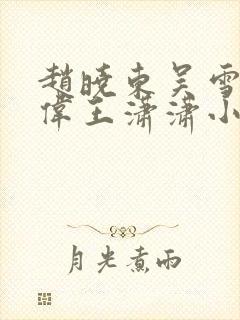 趙曉東吴雪
偉王瀟瀟小
月光煮雨